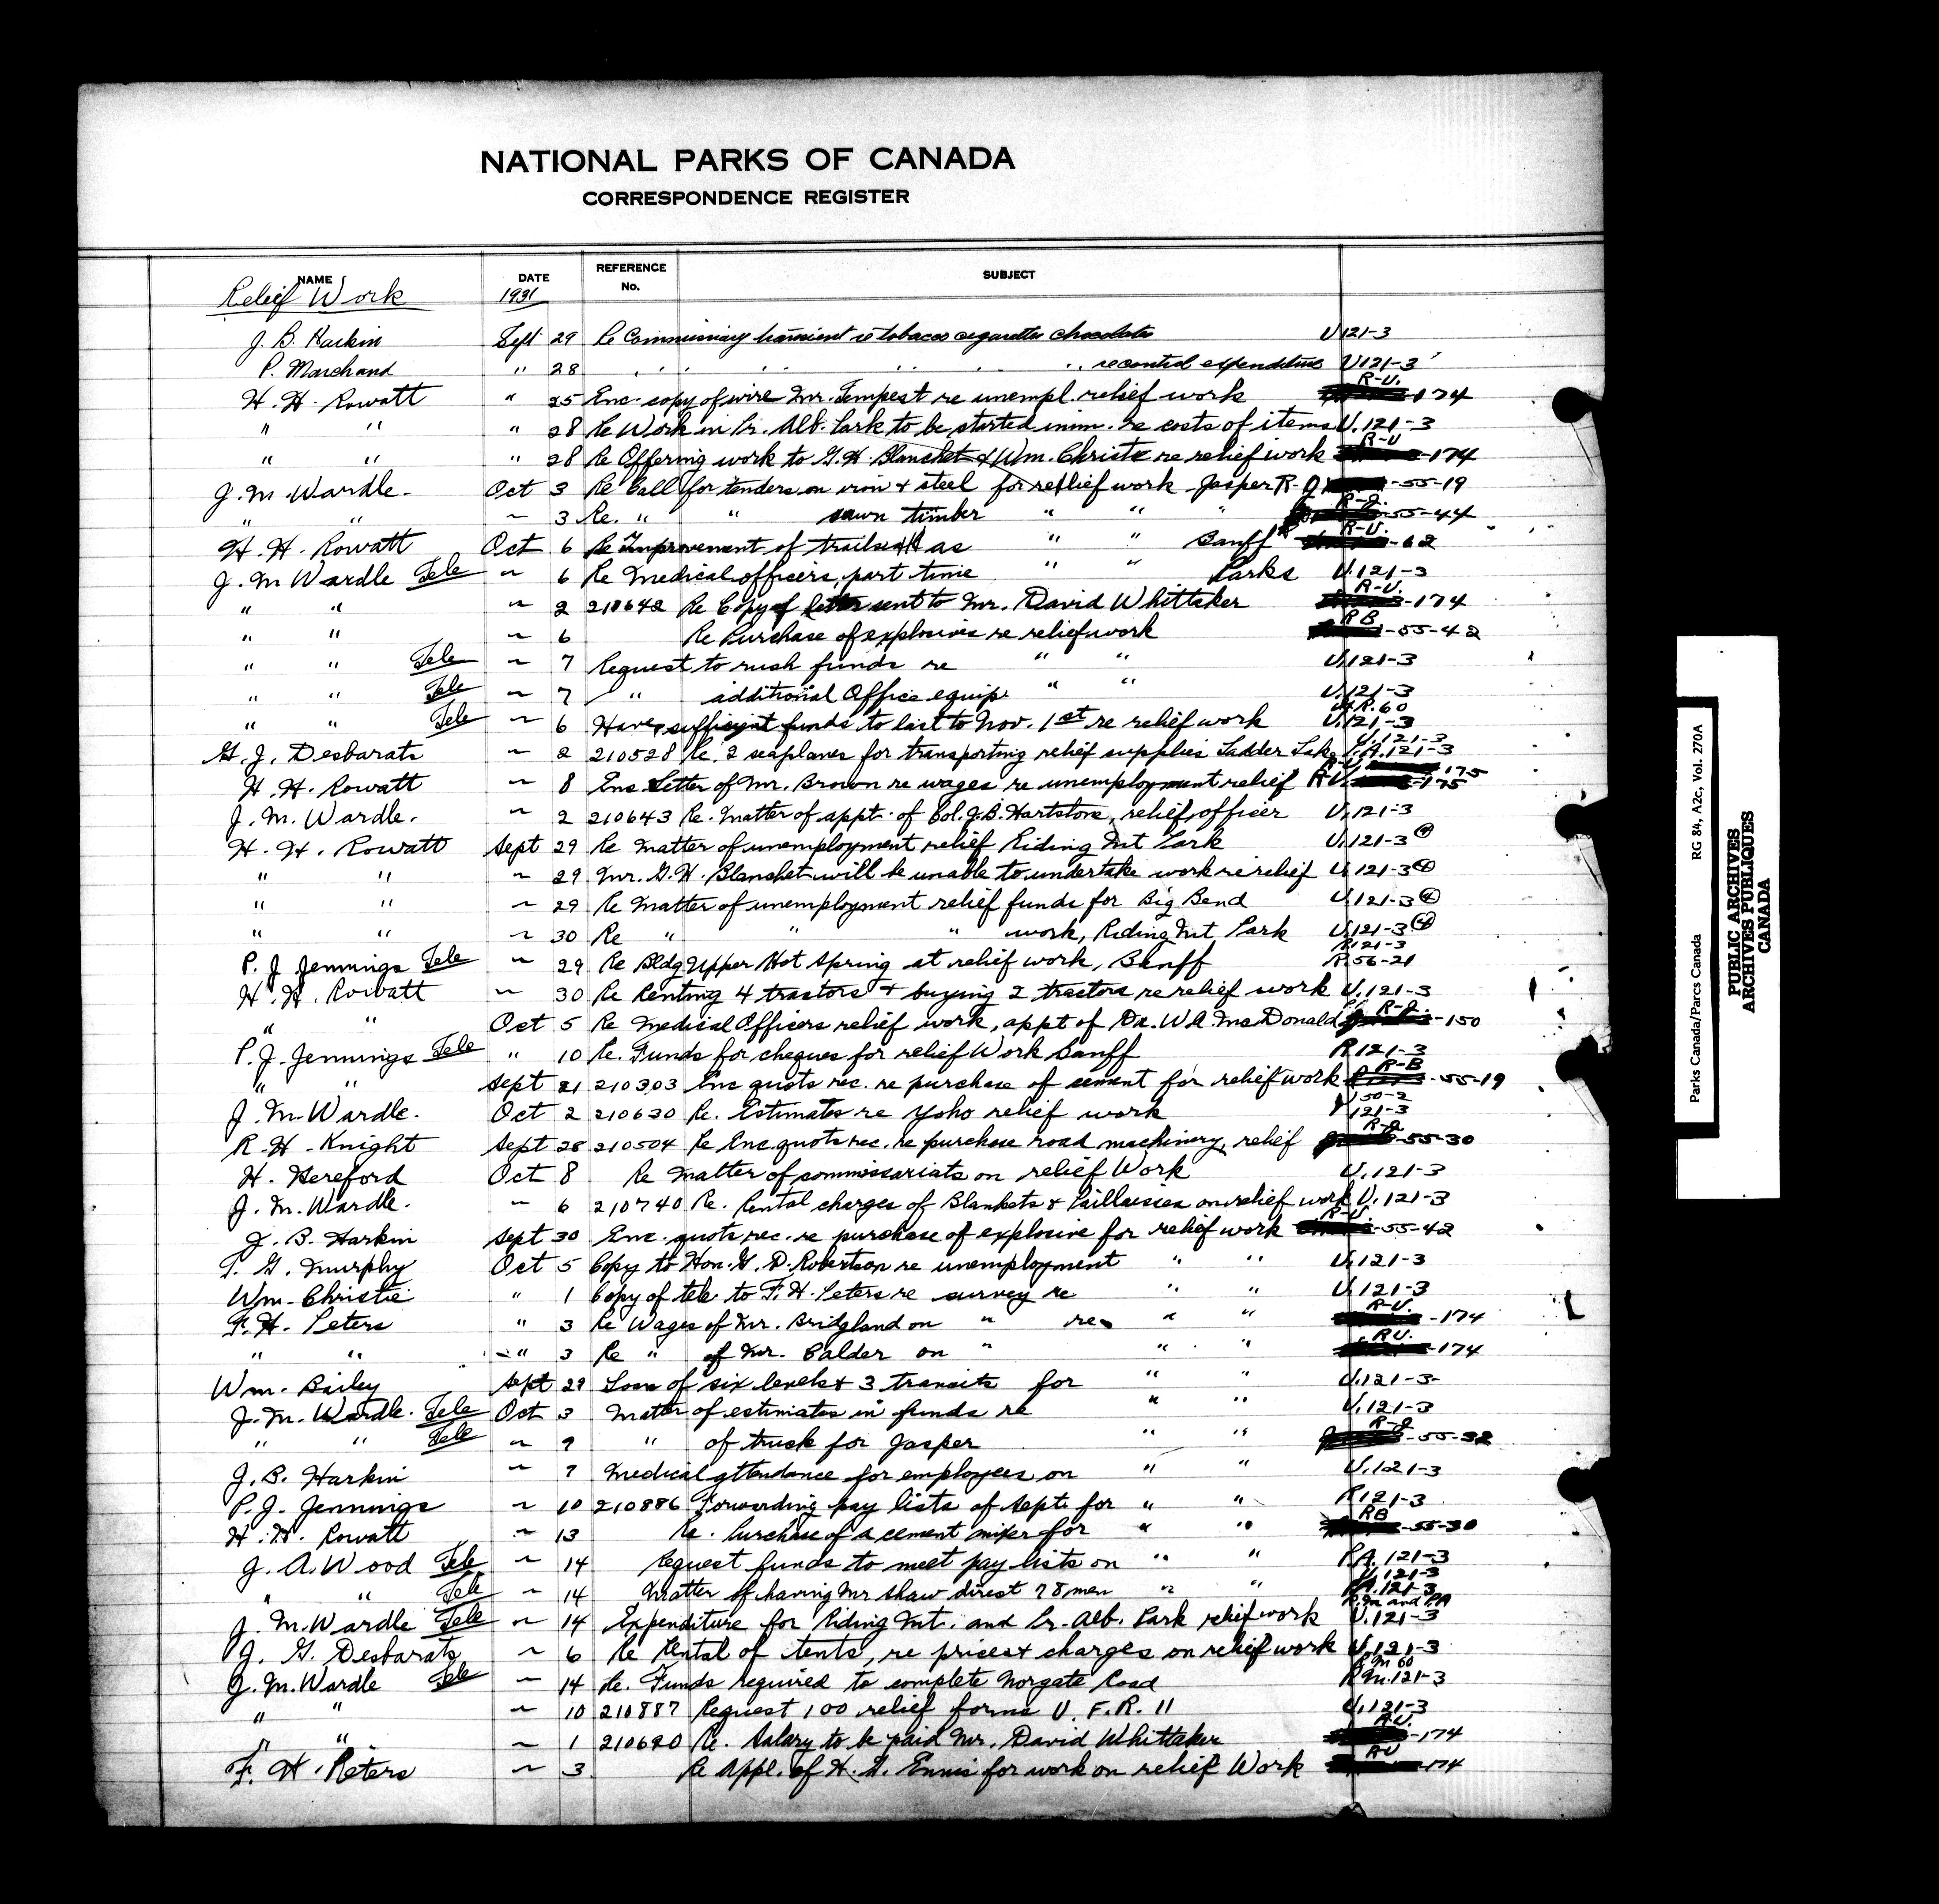 NATIONAL PARKS OF CANADA
CORRESPONDENCE REGISTER
NAME DATE REFERENCE No. SUBJECT
Relief Work 1931
J. B. Harkin Sept 29 Re Commissary re tobacco cigarettes chocolate U 121-3
P. Marchand " 28 " " " " " re control expenditure U 121-3
H. H. Rowatt " 25 Enc. copy of wire Mr. Tempest re unempl. relief work R-U. -174
" " " 28 Re Work in Pr. Alb. Park to be started imm. re costs of items U. 121-3
" " " 28 Re Offering work to G. H. Blanchet & Wm. Christie re relief work R-U -174
J. M. Wardle. Oct 3 Re Call for tenders on iron & steel for relief work - Jasper R-J -55-19
" " ~ 3 Re. " " sawn timber " " " R-J. -55-44
H. H. Rowatt Oct 6 Re Improvement of trails as " " Banff R-U. -62
J. M Wardle Tele ~ 6 Re Medical officers, part time " " Parks U. 121-3
" " ~ 2 210642 Re Copy of letter sent to Mr. David Whittaker R-U. -174
" " ~ 6 Re Purchase of explosives re relief work RB -55-42
" " Tele ~ 7 Request to rush funds re " " U. 121-3
" " Tele ~ 7 " additional Office equip " " U. 121-3
" " Tele ~ 6 Have sufficient funds to last to Nov. 1st re relief work R. 60 U. 121-3
G. J. Desbarats ~ 2 210528 Re. 2 seaplanes for transporting relief supplies Ladder Lake U. 121-3 P.A. 121-3
H. H. Rowatt ~ 8 Enc Letter of Mr. Brown re wages re unemployment relief R-U. -175
J. M. Wardle. ~ 2 210643 Re. Matter of appt. of Col. J. B. Hartstone, relief officer U. 121-3
H. H. Rowatt Sept 29 Re Matter of unemployment relief Riding Mt Park U. 121-3 (4)
" " ~ 29 Mr. G. H. Blanchet will be unable to undertake work re relief U. 121-3 (4)
" " ~ 29 Re Matter of unemployment relief funds for Big Bend U. 121-3 (4)
" " ~ 30 Re " " " work, Riding Mt Park U. 121-3 (4)
P. J Jennings Tele ~ 29 Re Bldg Upper Hot Spring at relief work, Banff R 121-3 R. 56-21
H. H. Rowatt ~ 30 Re Renting 4 tractors & buying 2 tractors re relief work U. 121-3
" " Oct 5 Re Medical Officers relief work, appt of Dr. W. A. McDonald R-J. -150
P. J. Jennings Tele " 10 Re. Funds for cheques for relief Work Banff R 121-3
" " Sept 21 210303 Enc quots rec. re purchase of cement for relief work R-B -55-19
J. M. Wardle. Oct 2 210630 Re. Estimates re Yoho relief work Y 50-2 121-3
R. H. Knight Sept 28 210504 Re Enc. quots rec. re purchase road machinery, relief R-J -55-30
H. Hereford Oct 8 Re Matter of commissariats on relief Work U. 121-3
J. M. Wardle. ~ 6 210740 Re. Rental charges of Blankets & Paillasses on relief work U. 121-3
J. B. Harkin Sept 30 Enc. quots rec. re purchase of explosive for relief work R-U. -55-42
T. G. Murphy Oct 5 Copy to Hon. G. D. Robertson re unemployment " " U. 121-3
Wm. Christie " 1 Copy of tele to F. H. Peters re survey re " " U. 121-3
F. H. Peters " 3 Re Wages of Mr. Bridgland on " re " " R-U. -174
" " " 3 Re " of Mr. Calder on " " " RU. -174
Wm. Bailey Sept 29 Loan of six levels & 3 transits for " " U. 121-3
J. M. Wardle. Tele Oct 3 Matter of estimates in funds re " " U. 121-3
" " Tele ~ 9 " of truck for Jasper " " R-J -55-32
J. B. Harkin ~ 7 Medical attendance for employees on " " U. 121-3
P. J. Jennings ~ 10 210886 Forwarding pay lists of Sept. for " " R 121-3
H. H. Rowatt ~ 13 Re. Purchase of a cement mixer for " " RB -55-30
J. A. Wood Tele ~ 14 Request funds to meet pay lists on " " P.A. 121-3
" " Tele ~ 14 Matter of having Mr Shaw direct 78 men " " U. 121-3 P.A. 121-3
J. M. Wardle Tele ~ 14 Expenditure for Riding Mt. and Pr. Alb. Park relief work R.M and P.A U. 121-3
J. G. Desbarats ~ 6 Re Rental of tents, re prices & charges on relief work U. 121-3
J. M. Wardle Tele ~ 14 Re. Funds required to complete Norgate Road R M 60 R M. 121-3
" " ~ 10 210887 Request 100 relief forms U. F. R. 11 U. 121-3
" " ~ 1 210620 Re. Salary to be paid Mr. David Whittaker R-U. -174
F. H. Peters ~ 3 Re Appl. of H. A. Ennis for work on relief Work R-U -174
Parks Canada/Parcs Canada RG 84, A2c, Vol. 270A
PUBLIC ARCHIVES
ARCHIVES PUBLIQUES
CANADA